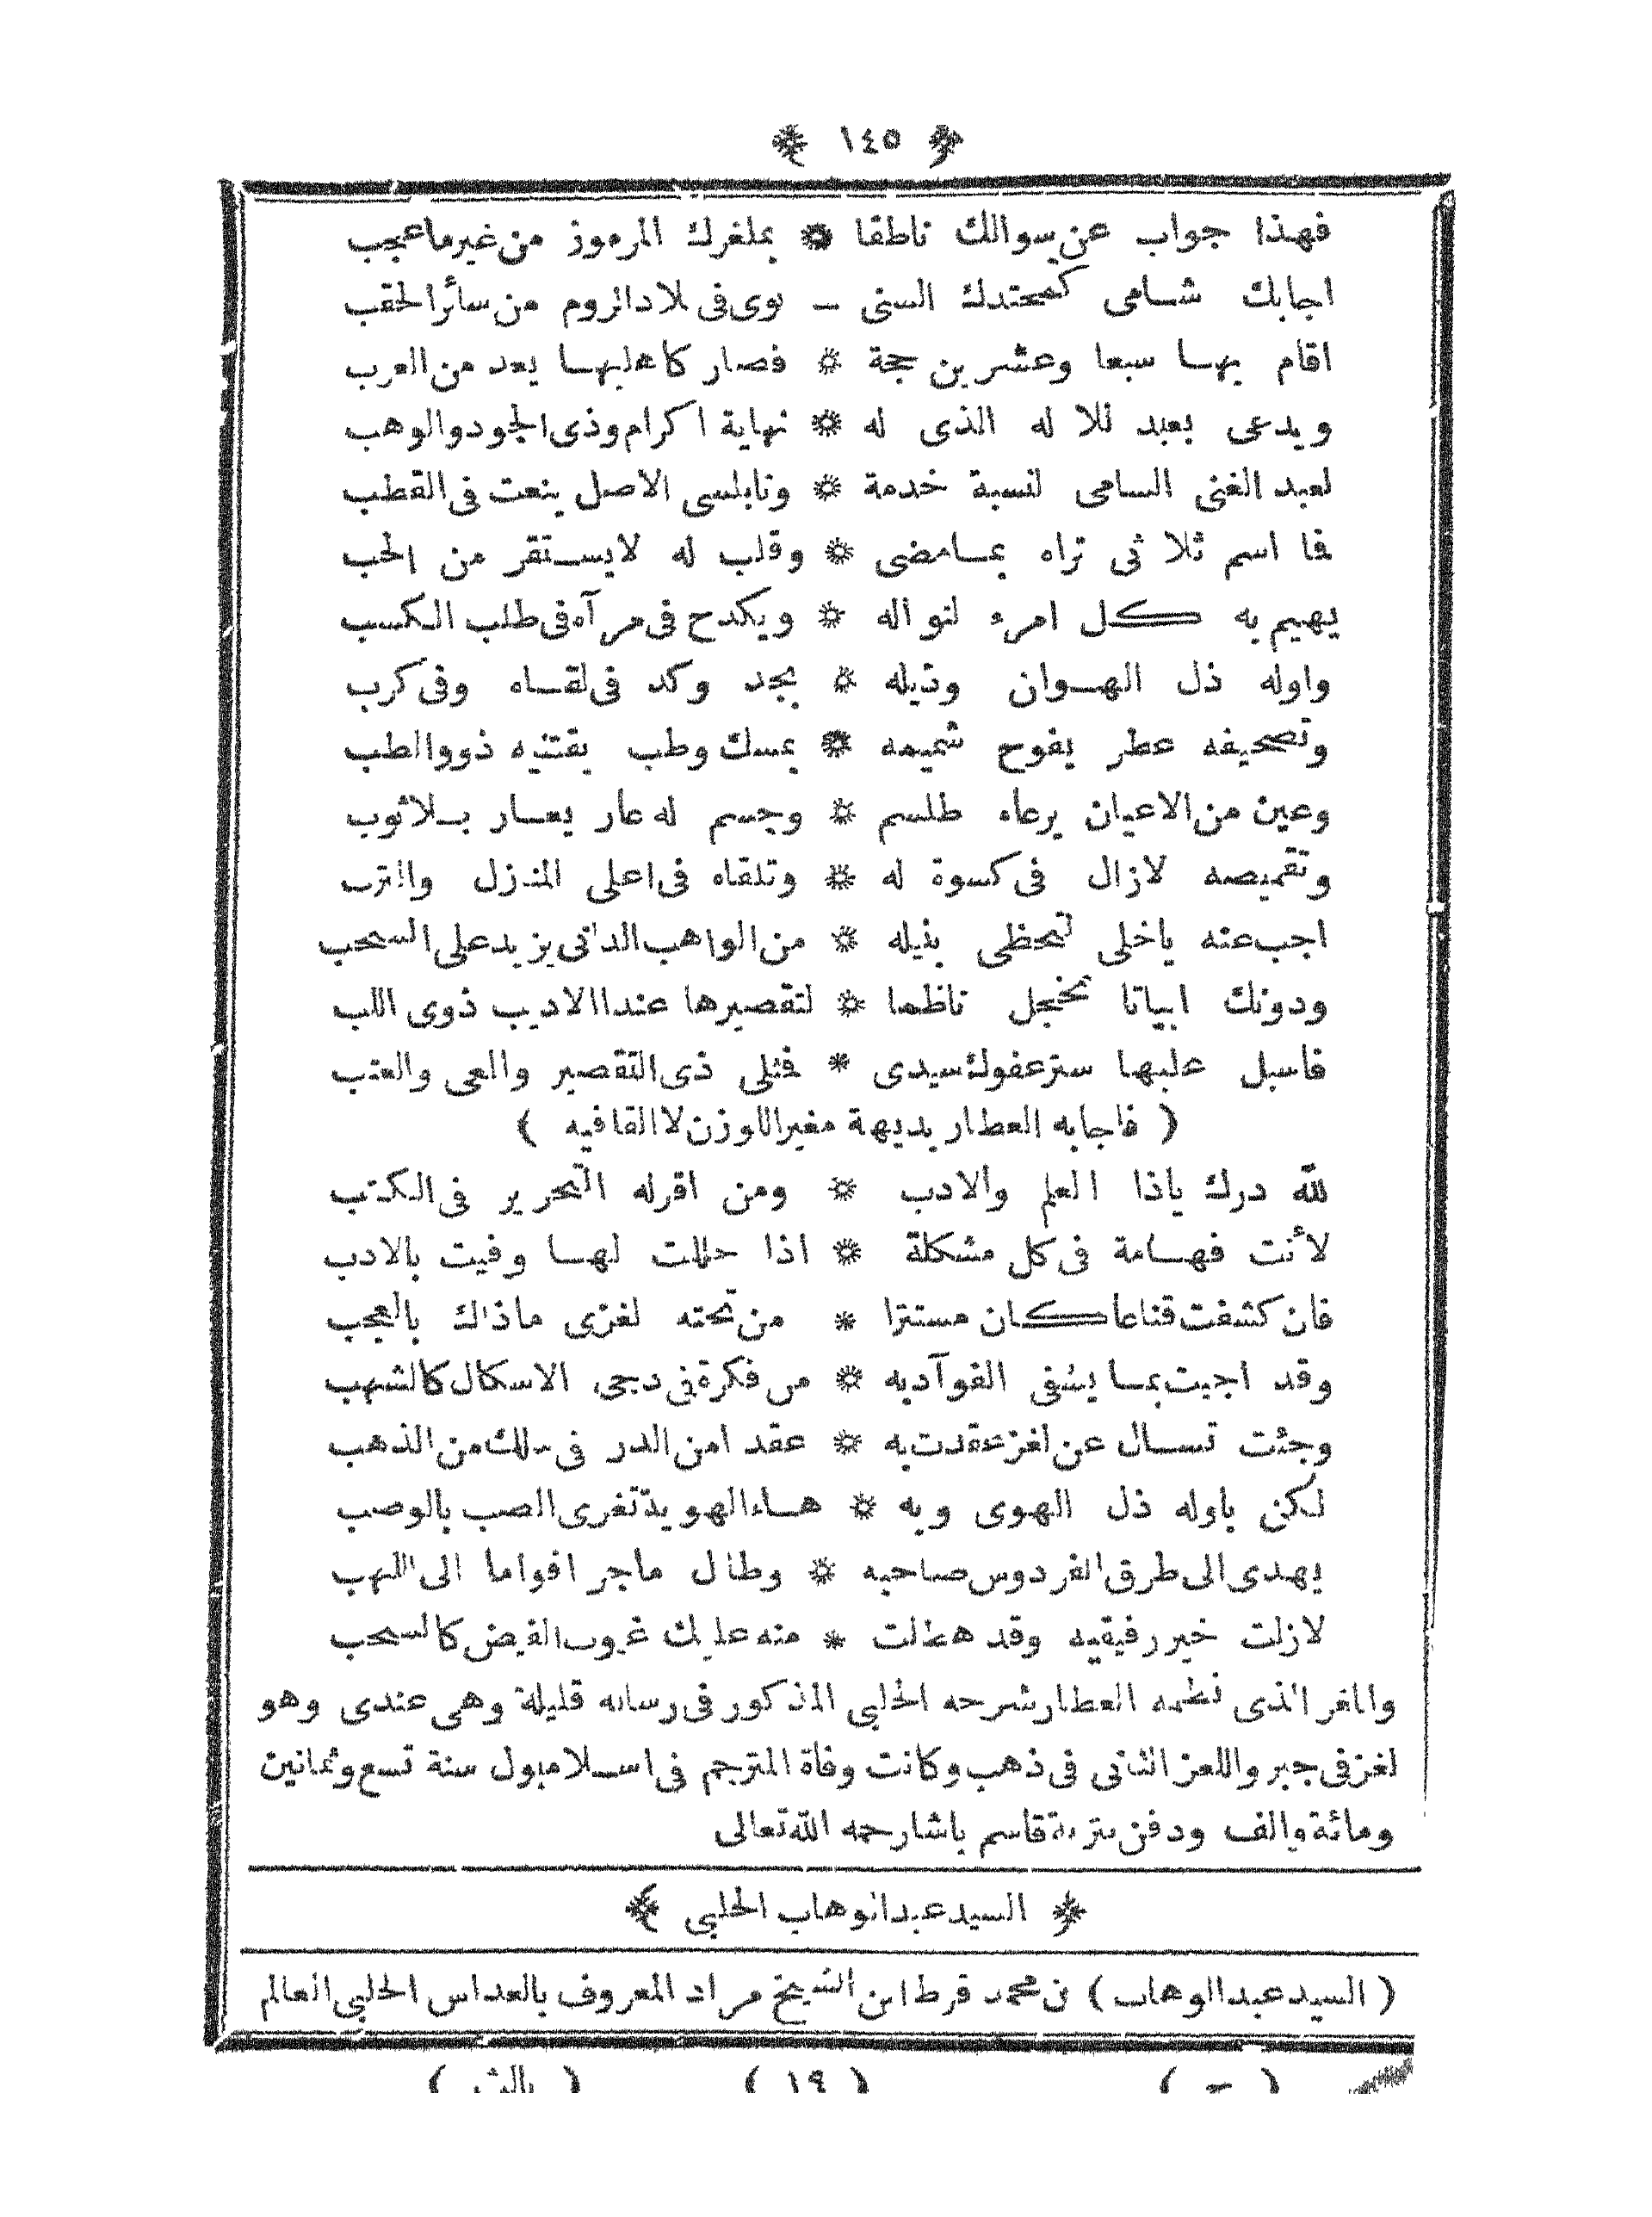 ﴿ ١٤٥ ﴾
فهذا جواب عن سوالك ناطقا * بملغزك المرموز من غير ما عجب
اجابك شامى كمحتدك السنى - نوى فى بلاد الروم من سائر الحقب
اقام بها سبعا وعشرين حجة * فصار كاهليها يعد من العرب
ويدعى بعبد للاله الذى له * نهاية اكرام وذى الجود والوهب
لعبد الغنى السامى لنسبة خدمة * ونابلسى الاصل ينعت فى القطب
فا اسم ثلاثى تراه بمامضى * وقلب له لايستقر من الحب
يهيم به كل امرء لنواله * ويكدح فى مرآه فى طلب الكسب
واوله ذل الهوان وذيله * بجد وكد فى لقاه وفى كرب
وتصحيفه عطر يفوح شميمه * بمسك وطب يقتنيه ذووالطب
وعين من الاعيان يرعاه طلسم * وجسم له عار يعار بلاثوب
وتقميصه لازال فى كسوة له * وتلقاه فى اعلى المنزل والترب
اجب عنه ياخلى لتحظى بنيله * من الواهب الداتى يزيد على السحب
ودونك ابياتا تخجل ناظما * لتقصيرها عندا الاديب ذوى اللب
فاسبل عليها ستر عفوك سيدى * فثلى ذى التقصير والعى والعتب
( فاجابه العطار بديهة مغير الاوزن لا القافيه )
لله درك ياذا العلم والادب * ومن اقر له التحرير فى الكتب
لأنت فهامة فى كل مشكلة * اذا حللت لها وفيت بالادب
فان كشفت قناعا كان مستترا * من تحته لغزى ماذاك بالعجب
وقد اجبت بما يشفى الفوآد به * من فكرة فى دجى الاسكال كالشهب
وجئت تسال عن لغز عقدت به * عقد امن الدر فى سلك من الذهب
لكن باوله ذل الهوى وبه * هاء الهويدّ تغرى الصب بالوصب
يهدى الى طرق الفردوس صاحبه * وطال ماجر اقواما الى اللهب
لازلت خير رفيقيه وقد هطلت * منه عليك غيوب الفيض كالسحب
والملغز الذى نظمه العطار شرحه الحلبى المذكور فى رساله قليلة وهى عندى وهو
لغز فى جبر واللعز الثانى فى ذهب وكانت وفاة المترجم فى اسلامبول سنة تسع وثمانين
ومائة والف ودفن بتربة قاسم باشا رحمه الله تعالى
﴿ السيد عبد الوهاب الحلبى ﴾
( السيد عبد الوهاب ) بن محمد قرط ابن الشيخ مراد المعروف بالعداس الحلبى العالم
( ١٩ )